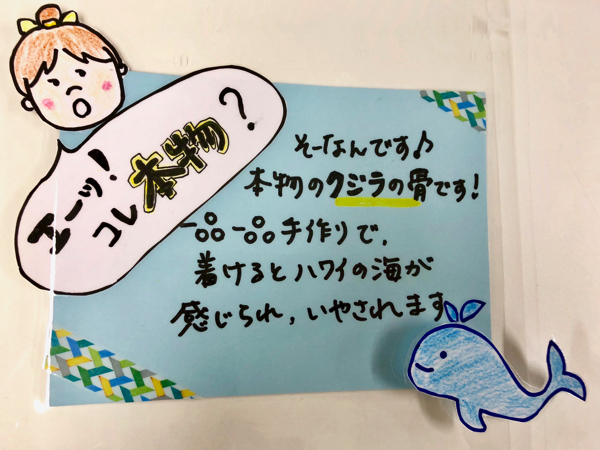 エーッ!
コレ本物?
そーなんです♪
本物のクジラの骨です!
一品一品手作りで、
着けるとハワイの海が
感じられ、いやされます